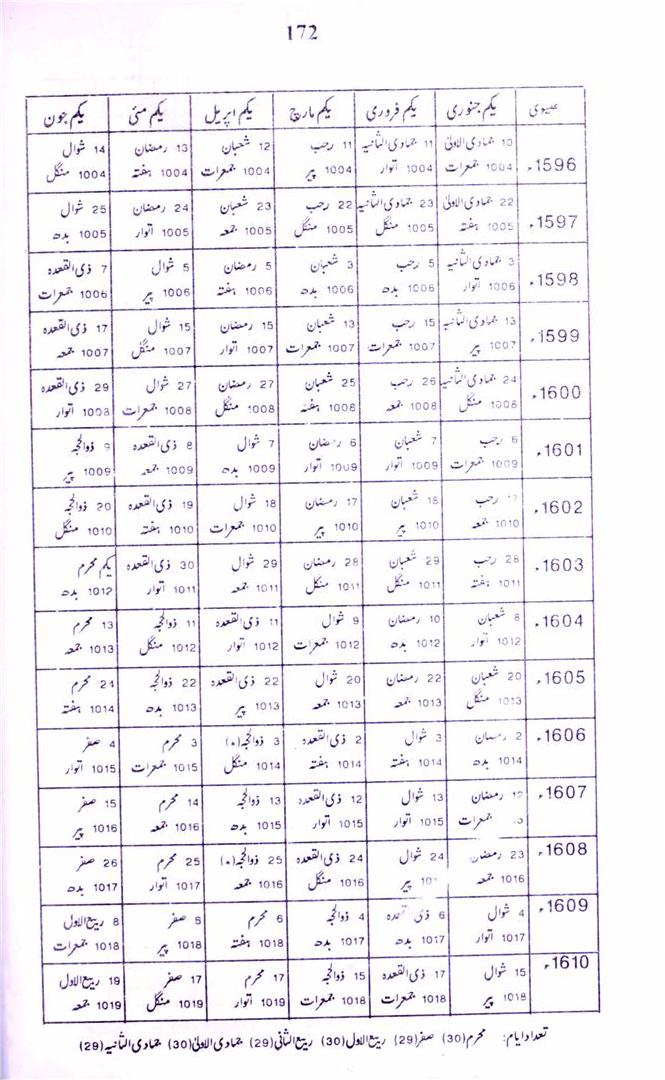 172
عیسوی یکم جنوری یکم فروری یکم مارچ یکم اپریل یکم مئی یکم جون
1596ء 10 جمادی الاولیٰ 11 جمادی الثانیہ 11 رجب 12 شعبان 13 رمضان 14 شوال
1004 جمعرات 1004 اتوار 1004 پیر 1004 جمعرات 1004 ہفتہ 1004 منگل
1597ء 22 جمادی الاولیٰ 23 جمادی الثانیہ 22 رجب 23 شعبان 24 رمضان 25 شوال
1005 ہفتہ 1005 منگل 1005 منگل 1005 جمعہ 1005 اتوار 1005 بدھ
1598ء 3 جمادی الثانیہ 5 رجب 3 شعبان 5 رمضان 5 شوال 7 ذی القعدہ
1006 اتوار 1006 بدھ 1006 بدھ 1006 ہفتہ 1006 پیر 1006 جمعرات
1599ء 13 جمادی الثانیہ 15 رجب 13 شعبان 15 رمضان 15 شوال 17 ذی القعدہ
1007 پیر 1007 جمعرات 1007 جمعرات 1007 اتوار 1007 منگل 1007 جمعہ
1600ء 24 جمادی الثانیہ 26 رجب 25 شعبان 27 رمضان 27 شوال 29 ذی القعدہ
1008 منگل 1008 جمعہ 1008 ہفتہ 1008 منگل 1008 جمعرات 1008 اتوار
1601ء 6 رجب 7 شعبان 6 رمضان 7 شوال 8 ذی القعدہ 9 ذوالحجہ
1009 جمعرات 1009 اتوار 1009 اتوار 1009 بدھ 1009 جمعہ 1009 پیر
1602ء رجب 18 شعبان 17 رمضان 18 شوال 19 ذی القعدہ 20 ذوالحجہ
1010 جمعہ 1010 پیر 1010 پیر 1010 جمعرات 1010 ہفتہ 1010 منگل
1603ء 28 رجب 29 شعبان 28 رمضان 29 شوال 30 ذی القعدہ یکم محرم
1011 ہفتہ 1011 منگل 1011 منگل 1011 جمعہ 1011 اتوار 1012 بدھ
1604ء 8 شعبان 10 رمضان 9 شوال 11 ذی القعدہ 11 ذوالحجہ 13 محرم
1012 اتوار 1012 بدھ 1012 جمعرات 1012 اتوار 1012 منگل 1013 جمعہ
1605ء 20 شعبان 22 رمضان 20 شوال 22 ذی القعدہ 22 ذوالحجہ 24 محرم
1013 منگل 1013 جمعہ 1013 جمعہ 1013 پیر 1013 بدھ 1014 ہفتہ
1606ء 2 رمضان 3 شوال 2 ذی القعدہ 3 ذوالحجہ (٭) 3 محرم 4 صفر
1014 بدھ 1014 ہفتہ 1014 ہفتہ 1014 منگل 1015 جمعرات 1015 اتوار
1607ء رمضان 13 شوال 12 ذی القعدہ 13 ذوالحجہ 14 محرم 15 صفر
جمعرات 1015 اتوار 1015 اتوار 1015 بدھ 1016 جمعہ 1016 پیر
1608ء 23 رمضان 24 شوال 24 ذی القعدہ 25 ذوالحجہ (٭) 25 محرم 26 صفر
1016 جمعہ پیر 1016 منگل 1016 جمعہ 1017 اتوار 1017 بدھ
1609ء 4 شوال 6 ذی قعدہ 4 ذوالحجہ 6 محرم 6 صفر 8 ربیع الاول
1017 اتوار 1017 بدھ 1017 بدھ 1018 ہفتہ 1018 پیر 1018 جمعرات
1610ء 15 شوال 17 ذی القعدہ 15 ذوالحجہ 17 محرم 17 صفر 19 ربیع الاول
1018 پیر 1018 جمعرات 1018 جمعرات 1019 اتوار 1019 منگل 1019 جمعہ
تعداد ایام: محرم (30) صفر (29) ربیع الاول (30) ربیع الثانی (29) جمادی الاولیٰ (30) جمادی الثانیہ (29)